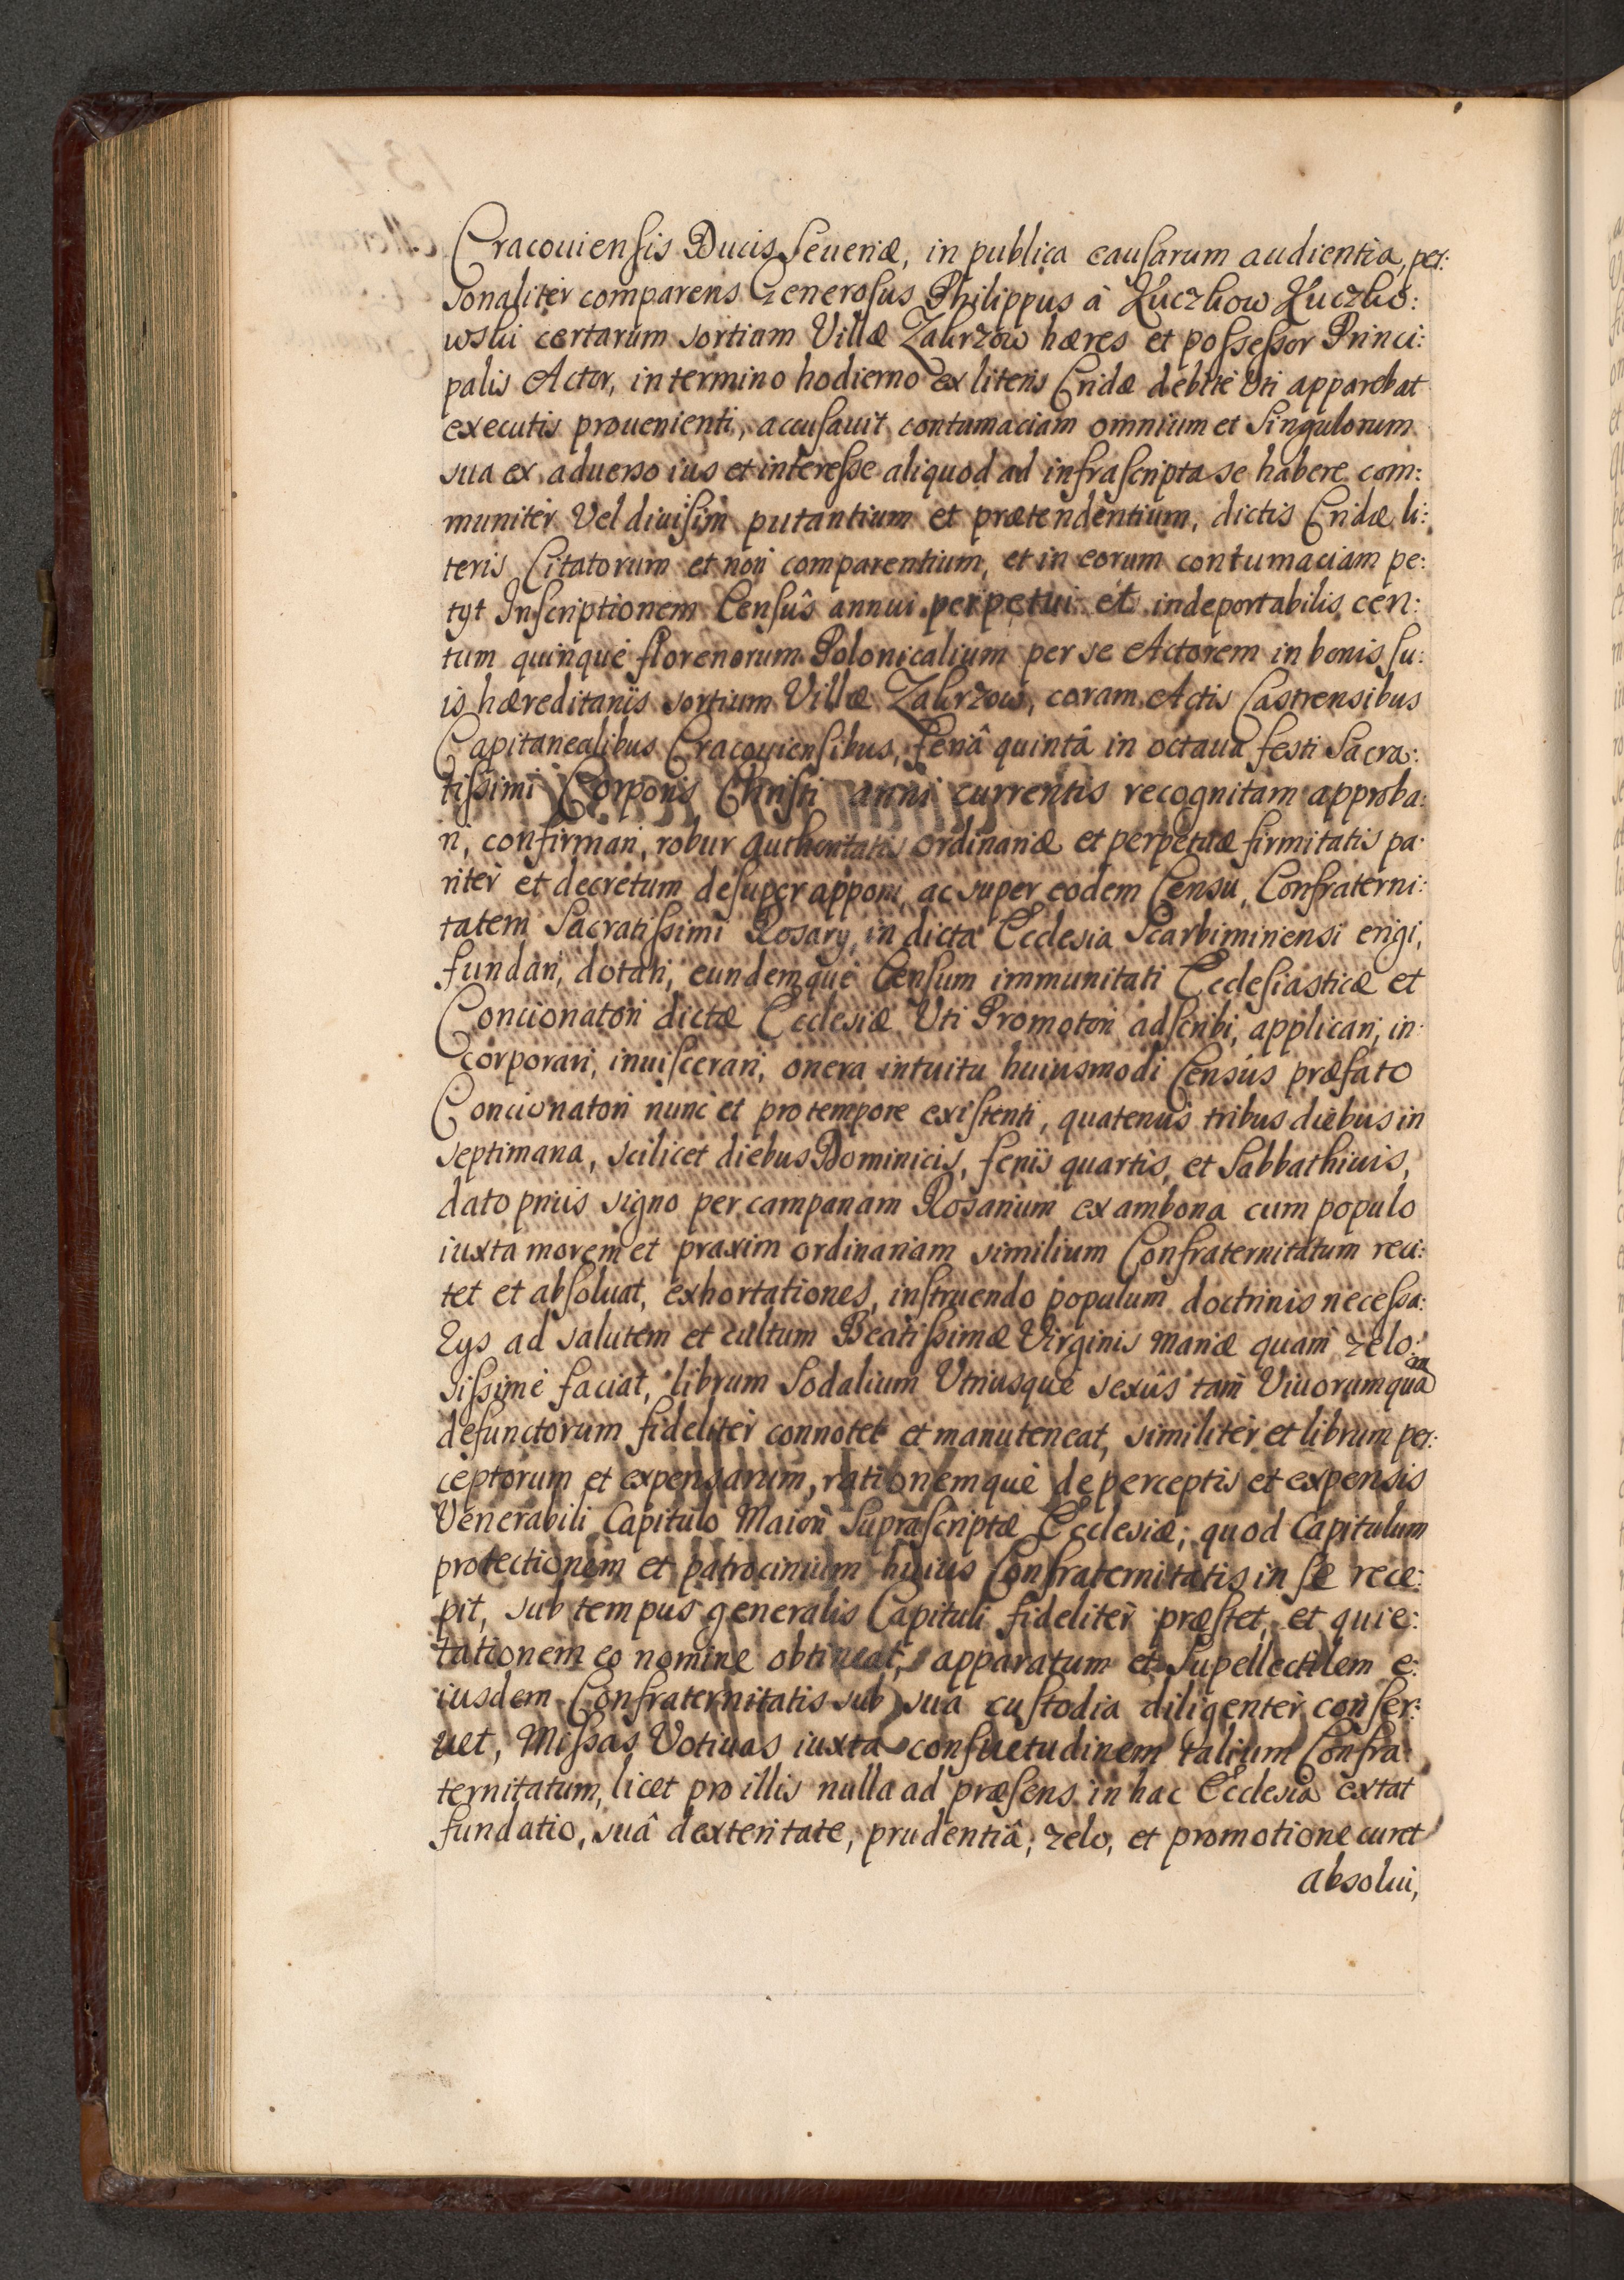 Cracouiensis Ducis Seueriæ, in publica causarum audientia, per:
sonaliter comparens Generosus Philippus à Kuczkow Kuczko:
wski certarum sortium Villæ Zakrzow hæres et possessor Princi:
palis Actor, in termino hodierno ex literis Cridæ debitè Uti apparebat
executis prouenienti, accusauit contumaciam omnium et Singulorum
sua ex aduerso ius et interesse aliquod ad infrascripta se habere com:
muniter Vel diuisim putantium et prætendentium, dictis Cridæ li:
teris Citatorum et non comparentium, et in eorum contumaciam pe:
tyt Inscriptionem Censûs annui perpetui et indeportabilis cen:
tum quinque florenorum Polonicalium per se Actorem in bonis su:
is hæreditariis sortium Villæ Zakrzow, coram Actis Castrensibus
Capitanealibus Cracouiensibus, feriâ quintâ in octaua festi Sacra:
tissimi Corporis Christi anni currentis recognitam approba:
ri, confirmari, robur authoritatis ordinariæ et perpetuæ firmitatis pa:
riter et decretum desuper apponi, ac super eodem Censu, Confraterni:
tatem Sacratissimi Rosary, in dicta Ecclesia Scarbimiriensi erigi,
fundari, dotari, eundemque Censum immunitati Ecclesiasticæ et
Concionatori dictæ Ecclesiæ Uti Promotori adscribi, applicari, in:
corporari, inuiscerari, onera intuitu huiusmodi Censús præfato
Concionatori nunc et pro tempore existenti, quatenus tribus diebus in
septimana, scilicet diebus Dominicis, feriis quartis, et Sabbathiuis,
dato prius signo per campanam Rosarium ex ambona cum populo
iuxta morem et praxim ordinariam similium Confraternitatum reci:
tet et absoluat, exhortationes, instruendo populum doctrinis necessa:
rys ad salutem et cultum Beatissimæ Virginis Mariæ quam zelo:
sissimè faciat, librum Sodalium Utriusque sexûs tam Viuorum quam
defunctorum fideliter connotet et manuteneat, similiter et librum per:
ceptorum et expensarum, rationemque de perceptis et expensis
Venerabili Capitulo Maiori Suprascriptæ Ecclesiæ; quod Capitulum
protectionem et patrocinium huius Confraternitatis in se rece:
pit, sub tempus generalis Capituli fideliter præstet, et quie:
tationem eo nomine obtineat, apparatum et Supellectilem e:
iusdem Confraternitatis sub sua custodia diligenter conser:
uet, Missas Votiuas iuxta consuetudinem talium Confra:
ternitatum, licet pro illis nulla ad præsens in hac Ecclesia extat
fundatio, suâ dexteritate, prudentiâ, zelo, et promotione curet
absolui,